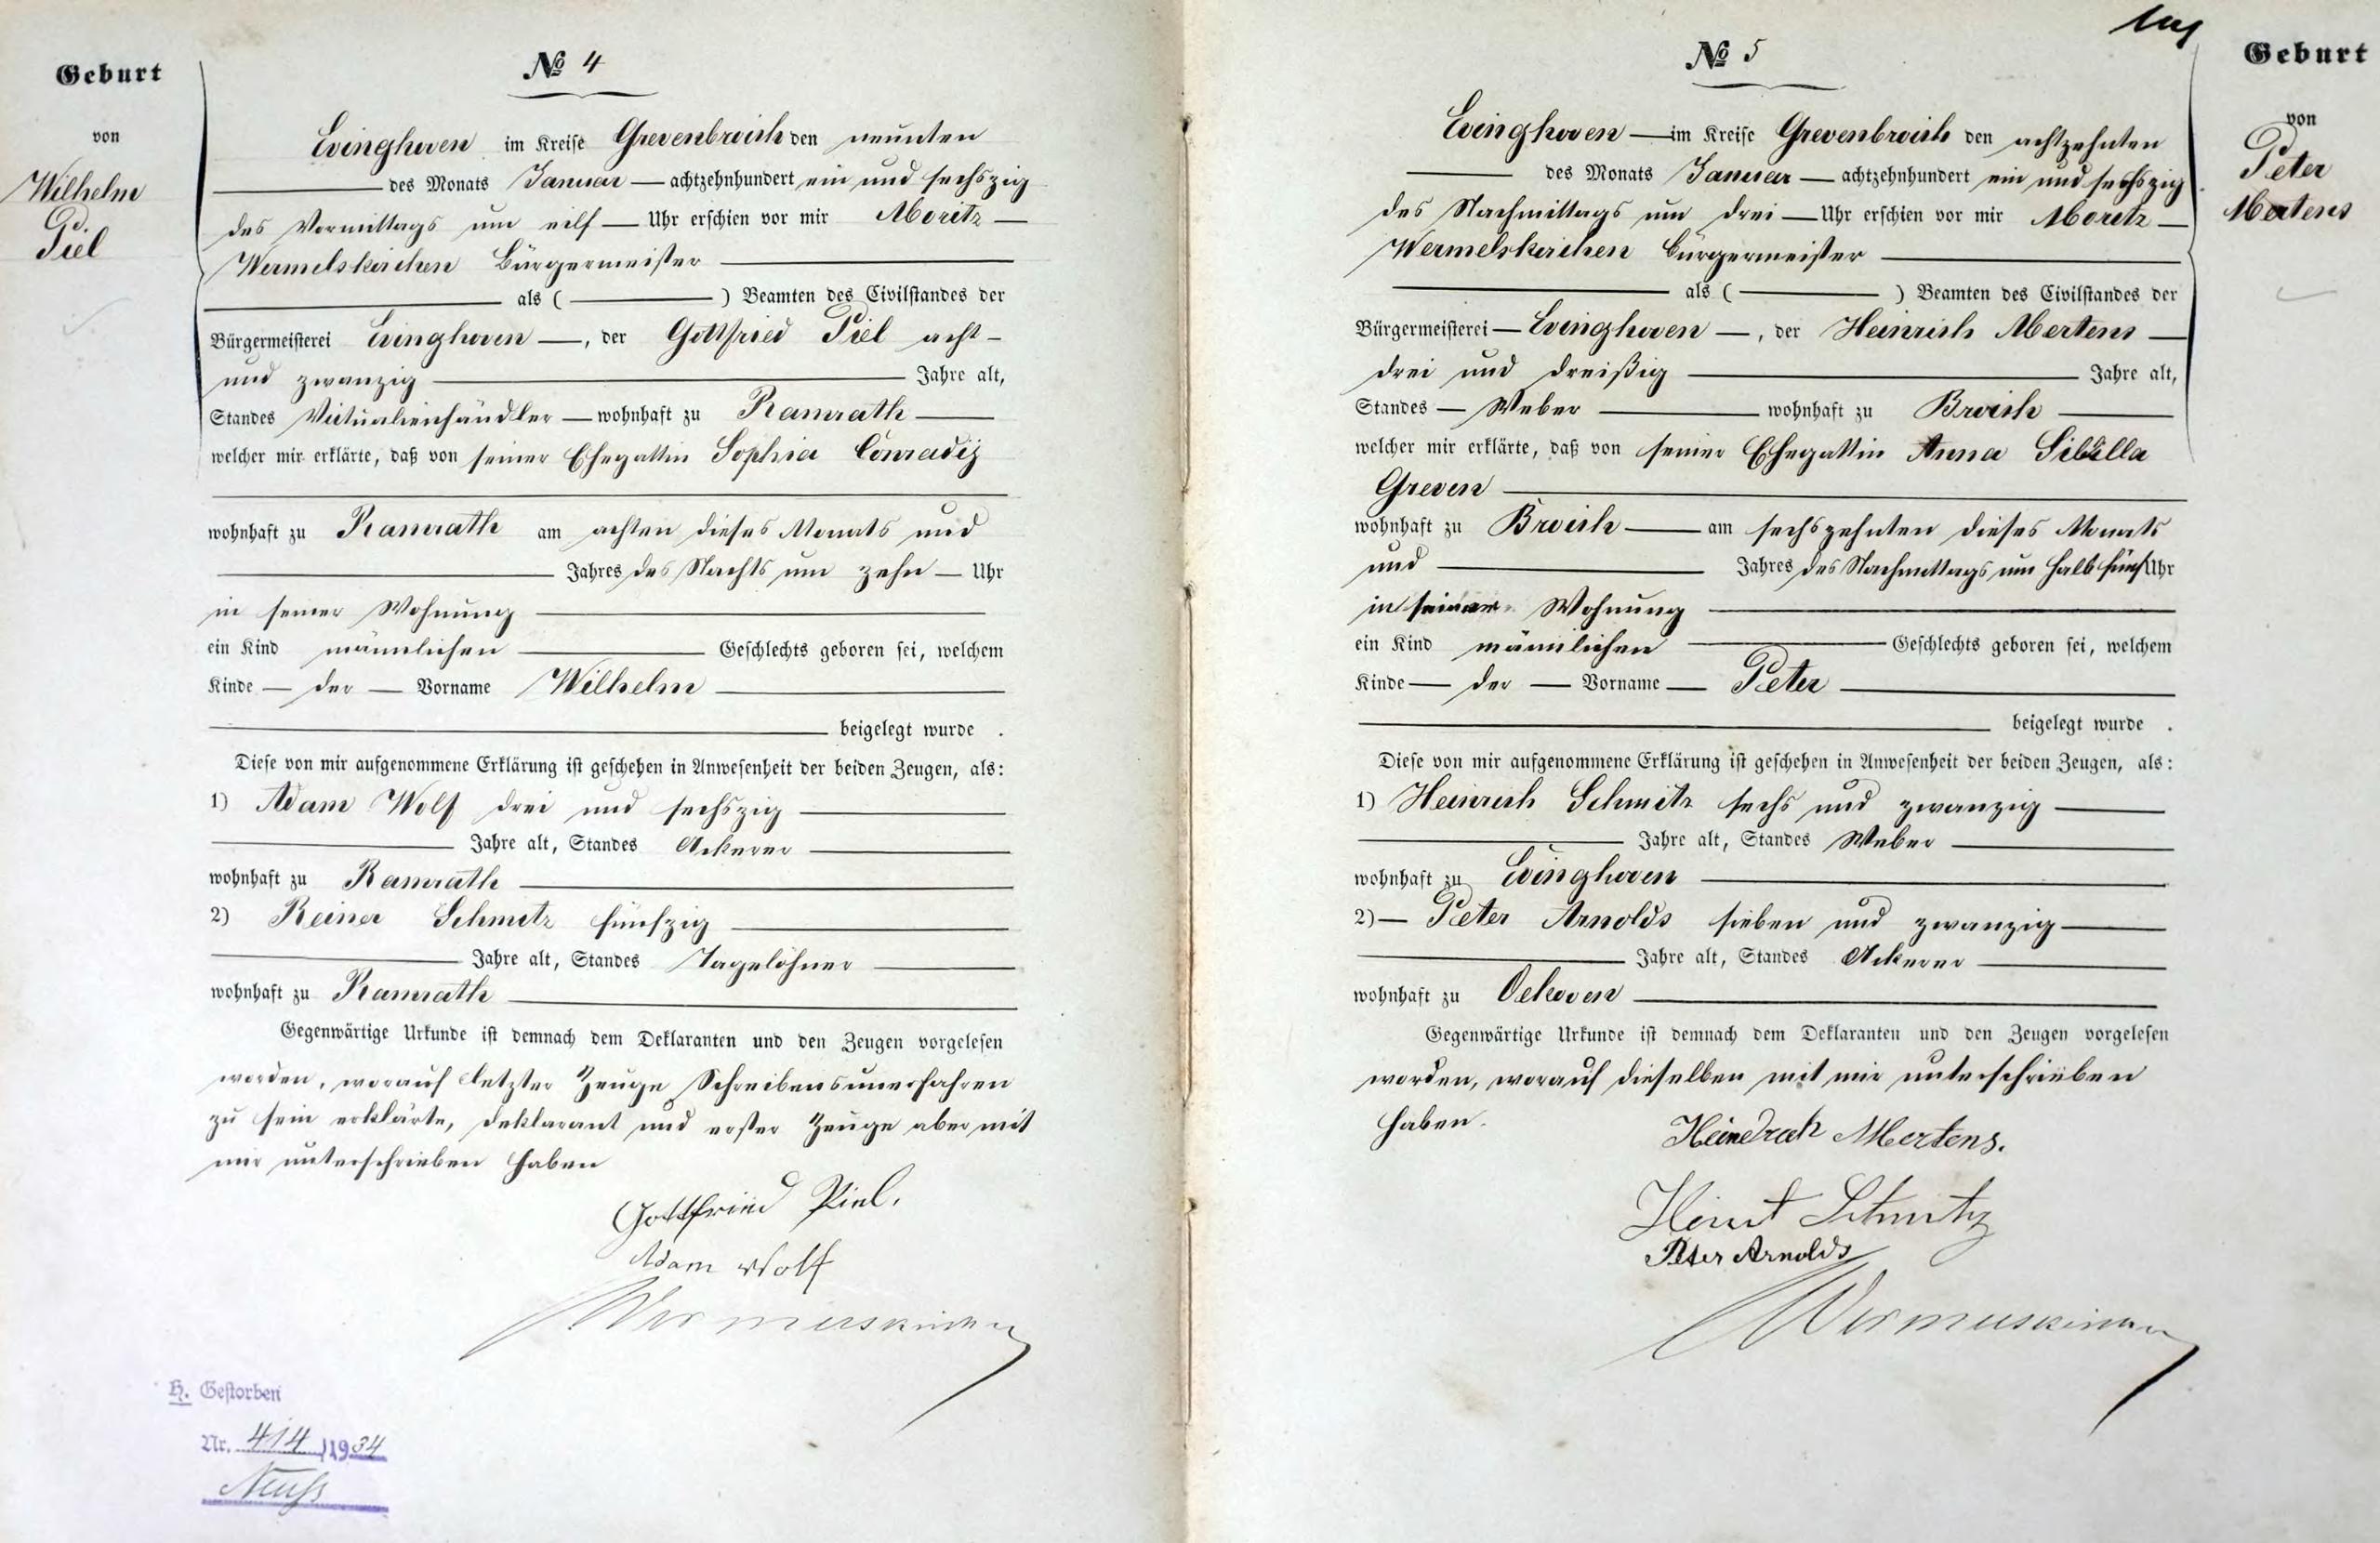 Geburt
von
Wilhelm
Piel
№ 4
Evinghoven im Kreise Grevenbroich den neunten
des Monats Januar achtzehnhundert ein und sechszig
des Vormittags um eilf Uhr erschien vor mir Moritz
Wermelskirchen Bürgermeister
als ( ) Beamten des Civilstandes der
Bürgermeisterei Evinghoven, der Gottfried Piel acht-
und zwanzig Jahre alt,
Standes Victualienhändler wohnhaft zu Ramrath
welcher mir erklärte, daß von seiner Ehegattin Sophia
wohnhaft zu Ramrath am achten dieses Monats und
Jahres des Nachts um zehn Uhr
in seiner Wohnung
ein Kind männlichen Geschlechts geboren sei, welchem
Kinde der Vorname Wilhelm
beigelegt wurde .
Diese von mir aufgenommene Erklärung ist geschehen in Anwesenheit der beiden Zeugen, als:
1) Adam Wolf drei und sechszig
Jahre alt, Standes Ackerer
wohnhaft zu Ramrath
2) Reiner Schmitz fünfzig
Jahre alt, Standes Tagelöhner
wohnhaft zu Ramrath
Gegenwärtige Urkunde ist demnach dem Deklaranten und den Zeugen vorgelesen
worden, worauf letzter Zeuge Schreibensunerfahren
zu sein erklärte, Deklarant und erster Zeuge aber mit
mir unterschrieben haben
Gottfried Piel.
Adam Wolf
Wermelskirchen
H. Gestorben
Nr. 414/1934
Neuß
№ 5
Geburt
von
Peter
Mertens
Evinghoven im Kreise Grevenbroich den achtzehnten
des Monats Januar achtzehnhundert ein und sechszig
des Nachmittags um drei Uhr erschien vor mir Moritz
Wermelskirchen Bürgermeister
als ( ) Beamten des Civilstandes der
Bürgermeisterei Evinghoven, der Heinrich Mertens
drei und dreißig Jahre alt,
Standes Weber wohnhaft zu Broich
welcher mir erklärte, daß von seiner Ehegattin Anna Sibilla
Greven
wohnhaft zu Broich am sechszehnten dieses Monats
und Jahres des Nachmittags um halb fünf Uhr
in seiner Wohnung
ein Kind männlichen Geschlechts geboren sei, welchem
Kinde der Vorname Peter
beigelegt wurde .
Diese von mir aufgenommene Erklärung ist geschehen in Anwesenheit der beiden Zeugen, als:
1) Heinrich Schmitz sechs und zwanzig
Jahre alt, Standes Weber
wohnhaft zu Evinghoven
2) Peter Arnolds sieben und zwanzig
Jahre alt, Standes Ackerer
wohnhaft zu Oekoven
Gegenwärtige Urkunde ist demnach dem Deklaranten und den Zeugen vorgelesen
worden, worauf dieselben mit mir unterschrieben
haben.
Heindrich Mertens.
Schmitz
Peter Arnolds
Wermelskirchen